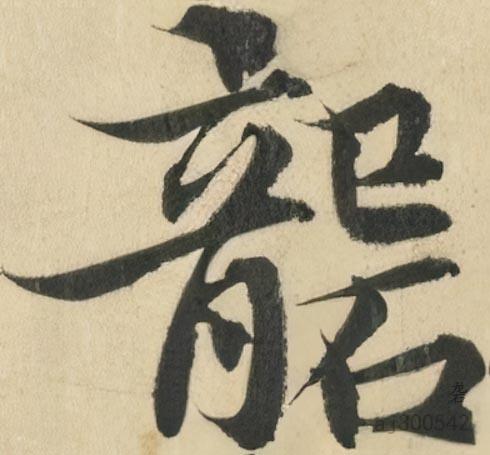 礱
砻
aj300542